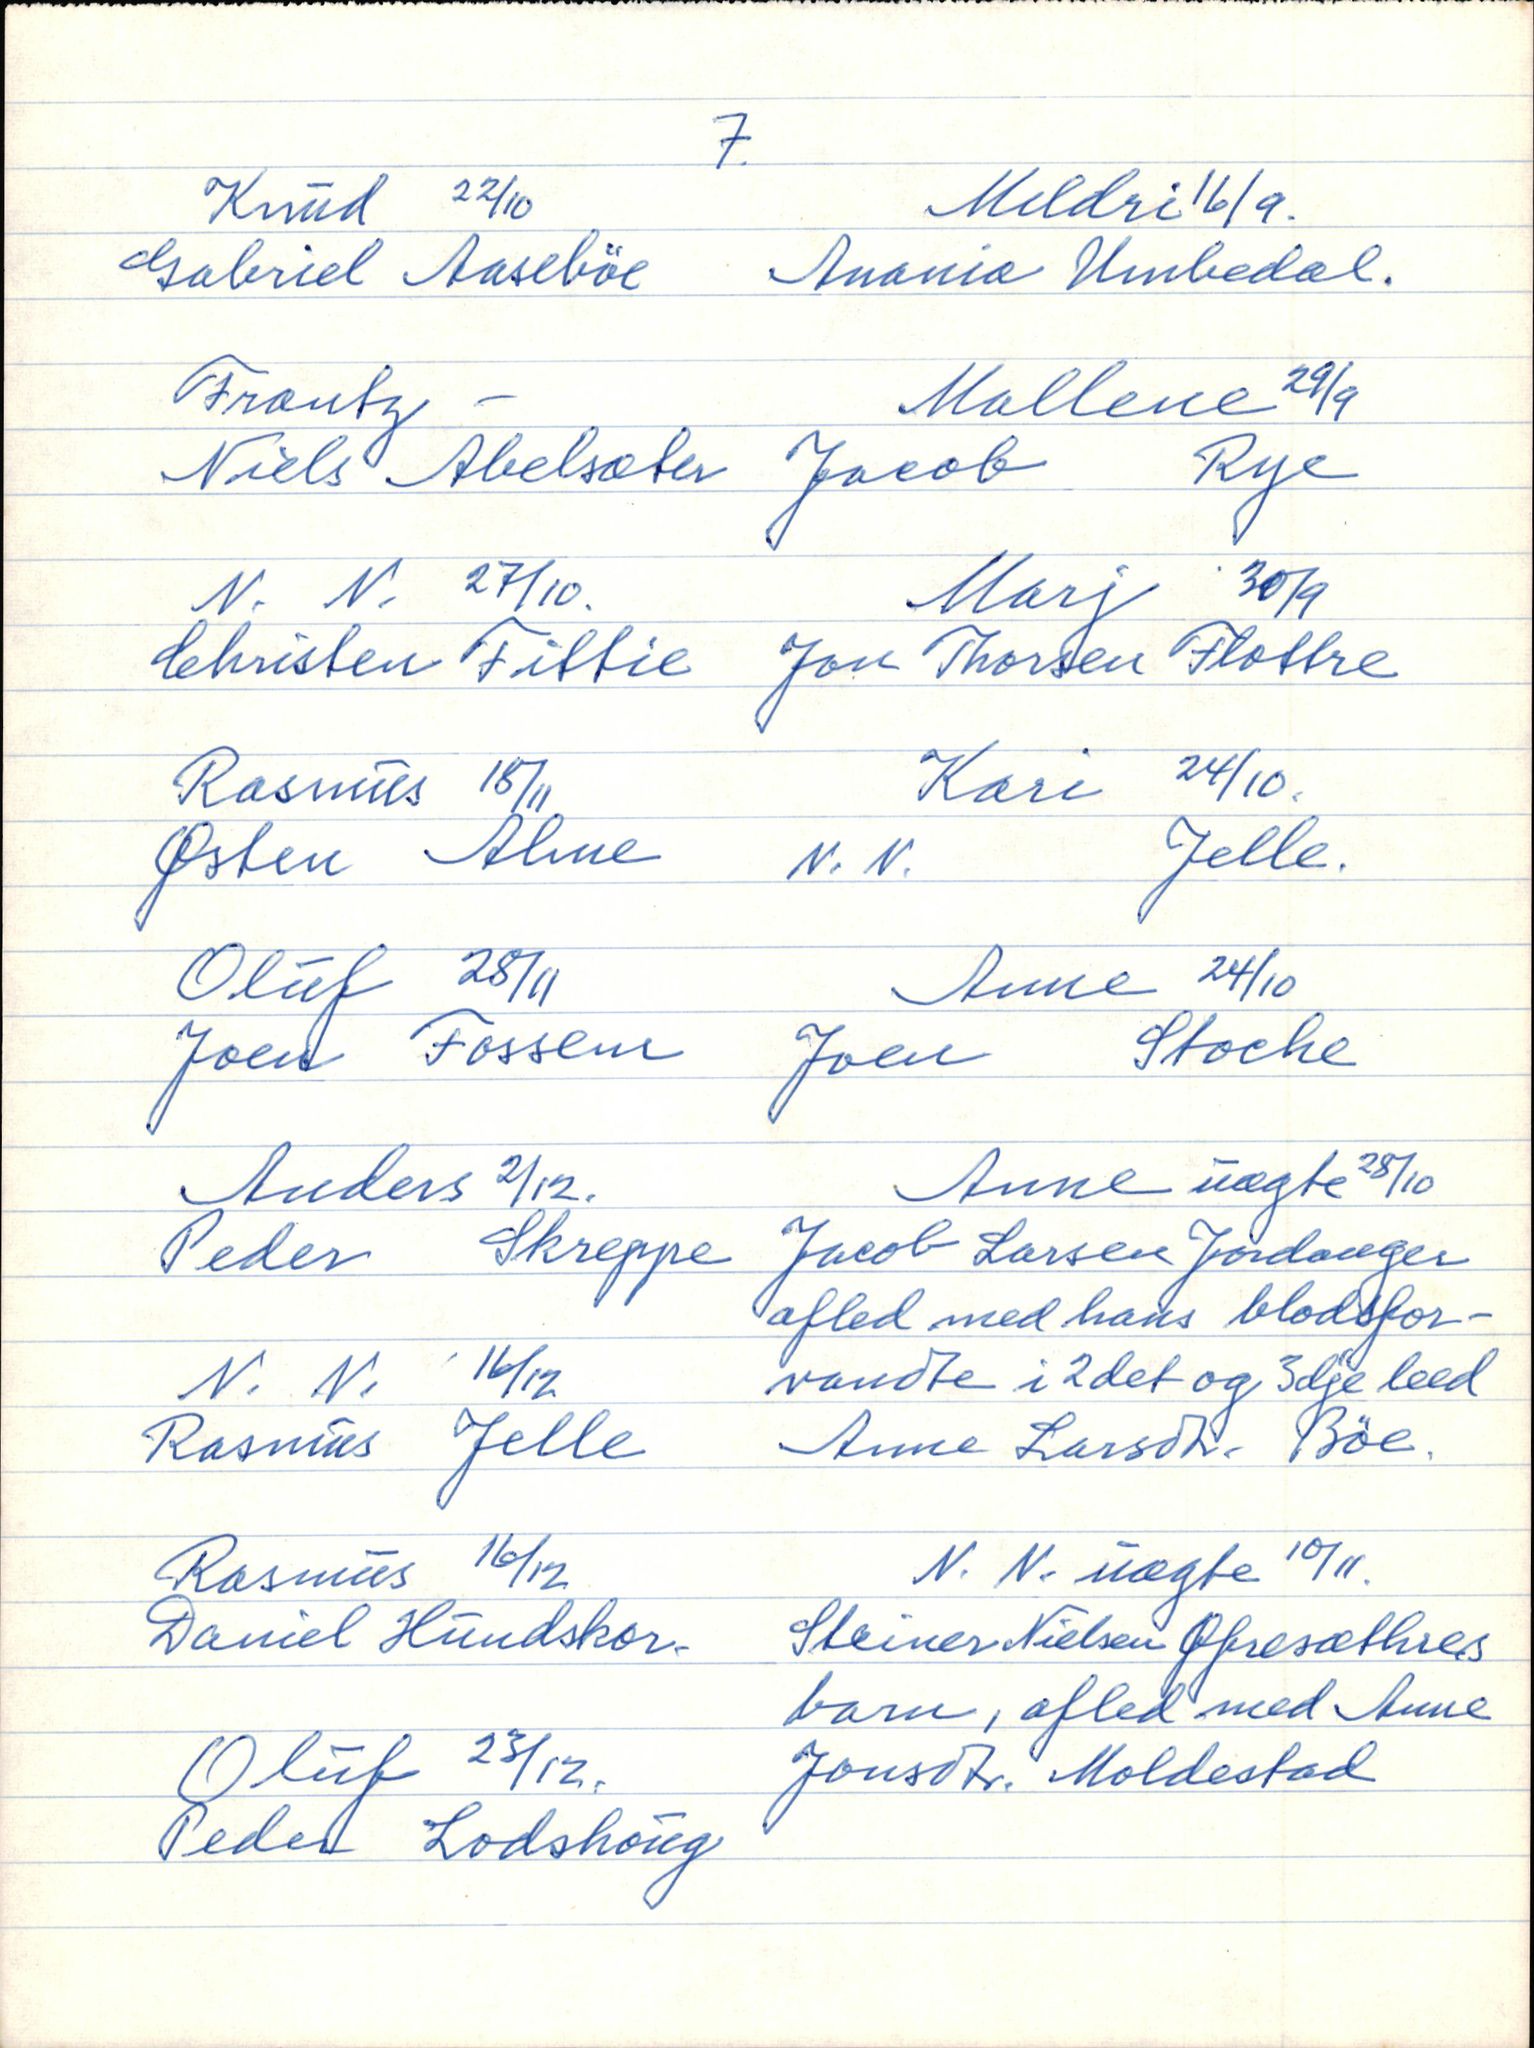 7.
Knud 22/10
Gabriel Aaseböe
Frantz -
Niels Abelsæter
N. N. 27/10.
Christen Fittie
Rasmus 18/11
Østen Alme
Oluf 28/11
Joen Fossem
Anders 2/12.
Peder Skreppe
N. N. 16/12
Rasmus Jelle
Rasmus 16/12
Daniel Hundskor.
Oluf 23/12.
Peder Lodshöug
Meldri 16/9.
Anania Umbedal.
Mallene 29/9
Jacob Rye
Marj 30/9
Jon Thorsen Flottre
Kari 24/10.
N. N. Jelle.
Anne 24/10
Joen Stocke
Anne uægte 28/10
Jacob Larsen Jordanger
afled med hans blodsfor-
vandte i 2det og 3dje leed
Anne Larsdtr. Böe.
N. N. uægte 10/11.
Steiner Nielsen Øfresæthres
barn, afled med Anne
Jonsdtr. Moldestad